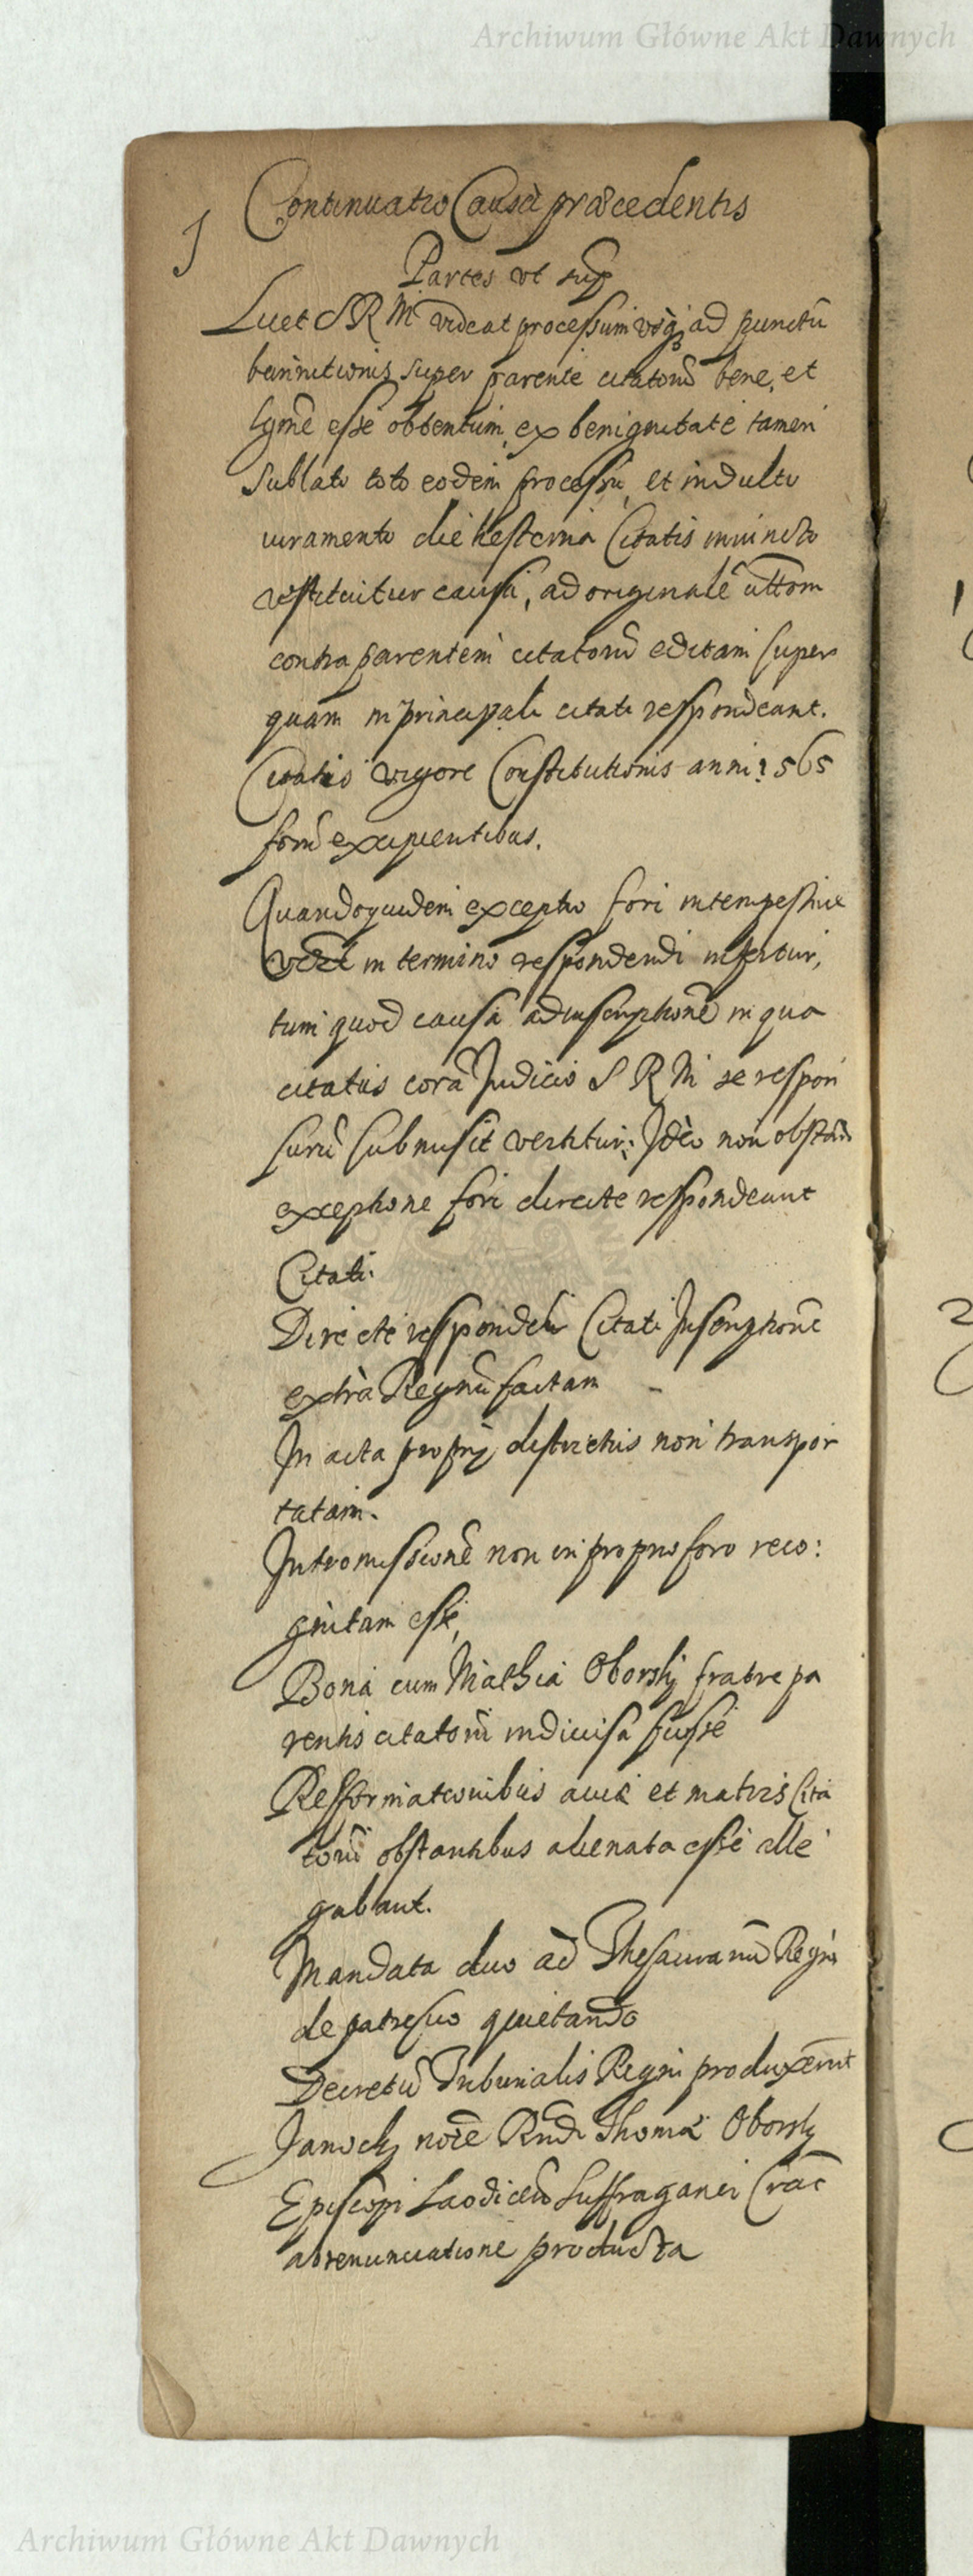 Archiwum Główne Akt Dawnych
Continuatio Causæ præcedentis
Partes ut sup
Licet S R M videat processum usq ad punctũ
bannitionis super parente citatorũ bene, et
lgme esse obtentum, ex benignitate tamen
sublato toto eodem processu, et indulto
iuramento die hesterna Citatis iniuncto
restituitur causa, ad originalẽ
contra parentem citatorũ editam super
quam in principali citati respondeant.
Citatis vigore Constitutionis anni 1565
forũ excipientibus.
Quandoquidem exceptio fori intempestive
in termino respondendi infertur,
tum quod causa ad inscriptionẽ in qua
citatus corã Judicio S R M se respon
surũ submisit vertitur: Ideo non obstan
exceptione fori directe respondeant
Citati.
Directe respondendo Citati Inscriptionẽ
extra Regnũ factam
In acta proprij districtus non transpor
tatam.
Intromissionẽ non in proprio foro reco:
gnitam esse,
Bona cum Mathia Oborskj fratre pa
rentis citatorũ indivisa fuisse
Refformationibus aviæ et matris Cita
torũ obstantibus alienata esse alle
gabant.
Mandata duo ad Thesaurariũ Regni
de patre suo quietando
Decretũ Tribunalis Regni produxerũt
Janockj noĩe Rndi Thomæ Oborskj
Episcopi Laodiceñ Suffraganei Crac
abrenunciatione producta
Archiwum Główne Akt Dawnych